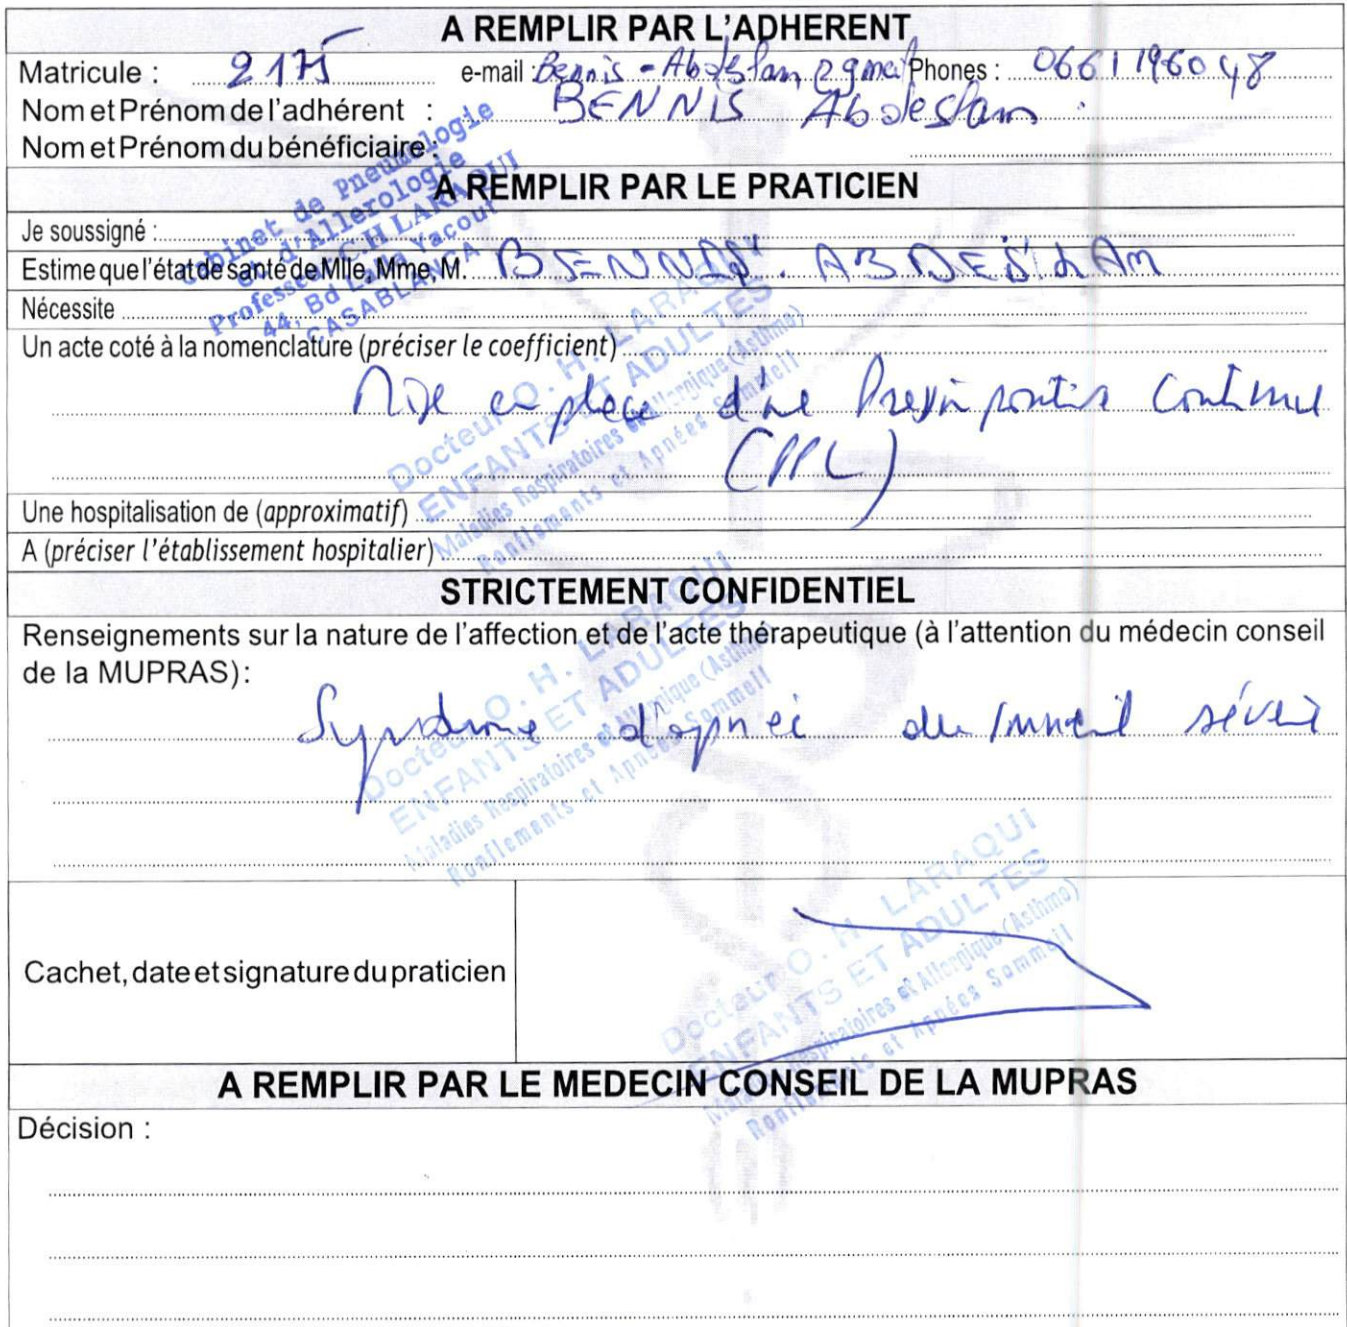 A REMPLIR PAR L'ADHERENT
Matricule : 2175 e-mail : Bennis - Abdeslam @gmail Phones : 0661196048
Nom et Prénom de l'adhérent : BENNIS Abdeslam
Nom et Prénom du bénéficiaire :
Cabinet de Pneumologie
et d'Allerologie
Professeur C.H LARAQUI
44, Bd Lalla Yacout
CASABLANCA
A REMPLIR PAR LE PRATICIEN
Je soussigné :
Estime que l'état de santé de Mlle, Mme, M. BENNIS. ABDESLAM
Nécessite
Un acte coté à la nomenclature (préciser le coefficient)
Mise en place d'une Pression positive Continue
(PPC)
Docteur O. H. LARAQUI
ENFANTS ET ADULTES
Maladies Respiratoires et Allergique (Asthme)
Ronflements et Apnées Sommeil
Une hospitalisation de (approximatif)
A (préciser l'établissement hospitalier)
STRICTEMENT CONFIDENTIEL
Renseignements sur la nature de l'affection et de l'acte thérapeutique (à l'attention du médecin conseil
de la MUPRAS):
Syndrome d'apnée du sommeil sévère
Docteur O. H. LARAQUI
ENFANTS ET ADULTES
Maladies Respiratoires et Allergique (Asthme)
Ronflements et Apnées Sommeil
Cachet, date et signature du praticien
Docteur O. H. LARAQUI
ENFANTS ET ADULTES
Maladies Respiratoires et Allergique (Asthme)
Ronflements et Apnées Sommeil
A REMPLIR PAR LE MEDECIN CONSEIL DE LA MUPRAS
Décision :